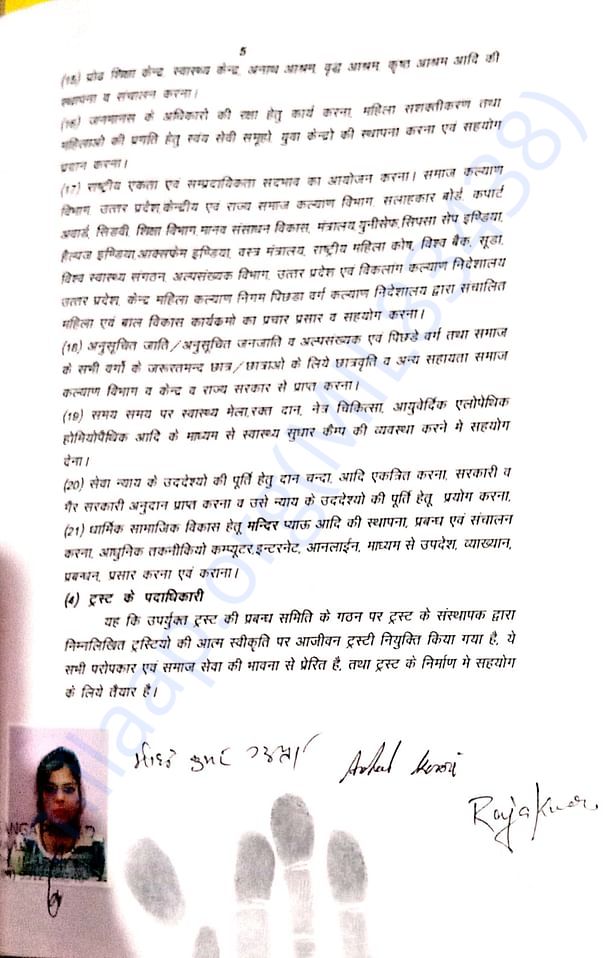 5
(15) प्रोढ शिक्षा केन्द्र, स्वास्थ्य केन्द्र, अनाथ आश्रम, वृद्ध आश्रम, कृष्ठ आश्रम आदि की
स्थापना व संचालन करना।
(16) जनमानस के अधिकारो की रक्षा हेतु कार्य करना, महिला सशक्तीकरण तथा
महिलाओ की प्रगति हेतु स्वंय सेवी समूहो, युवा केन्द्रो की स्थापना करना एवं सहयोग
प्रदान करना।
(17) राष्ट्रीय एकता एवं सम्प्रदायिकता सदभाव का आयोजन करना। समाज कल्याण
विभाग, उत्तर प्रदेश,केन्द्रीय एवं राज्य समाज कल्याण विभाग, सलाहकार बोर्ड, कपार्ट
अवार्ड, सिडवी शिक्षा विभाग,मानव संसाधन विकास, मंत्रालय,युनीसेफ,सिपसा सेप इण्डिया,
हैल्पज इण्डिया,आक्सफेम इण्डिया, वस्त्र मंत्रालय, राष्ट्रीय महिला कोष, विश्व बैक, सूडा,
विश्व स्वास्थ्य संगठन, अल्पसंख्यक विभाग, उत्तर प्रदेश एवं विकलांग कल्याण निदेशालय
उत्तर प्रदेश, केन्द्र महिला कल्याण निगम पिछडा वर्ग कल्याण निदेशालय द्वारा संचालित
महिला एवं बाल विकास कार्यकमो का प्रचार प्रसार व सहयोग करना।
(18) अनुसूचित जाति/अनुसूचित जनजाति व अल्पसंख्यक एवं पिछडे वर्ग तथा समाज
के सभी वर्गो के जरूरतमन्द छात्र/छात्राओ के लिये छात्रवृति व अन्य सहायता समाज
कल्याण विभाग व केन्द्र व राज्य सरकार से प्राप्त करना।
(19) समय समय पर स्वास्थ्य मेला,रक्त दान, नेत्र चिकित्सा, आयुवेर्दिक एलोपेथिक
होमियोपैथिक आदि के माध्यम से स्वास्थ्य सुधार कैम्प की व्यवस्था करने मे सहयोग
देना।
(20) सेवा न्याय के उददेश्यो की पूर्ति हेतु दान चन्दा, आदि एकत्रित करना, सरकारी व
गैर सरकारी अनुदान प्राप्त करना व उसे न्याय के उददेश्यो की पूर्ति हेतू प्रयोग करना,
(21) धार्मिक सामाजिक विकास हेतु मन्दिर प्याऊ आदि की स्थापना, प्रबन्ध एवं संचालन
करना, आधुनिक तकनीकियो कम्प्यूटर,इन्टरनेट, आनलाईन, माध्यम से उपदेश, व्याख्यान,
प्रबन्धन, प्रसार करना एवं कराना।
(4) ट्रस्ट के पदाधिकारी
यह कि उपर्युक्त ट्रस्ट की प्रबन्ध समिति के गठन पर ट्रस्ट के संस्थापक द्वारा
निम्नलिखित ट्रस्टियो की आत्म स्वीकृति पर आजीवन ट्रस्टी नियुक्ति किया गया है, ये
सभी परोपकार एवं समाज सेवा की भावना से प्रेरित है, तथा ट्रस्ट के निर्माण मे सहयोग
के लिये तैयार है।
Raja Kumar
milaap.org(MILB3438)